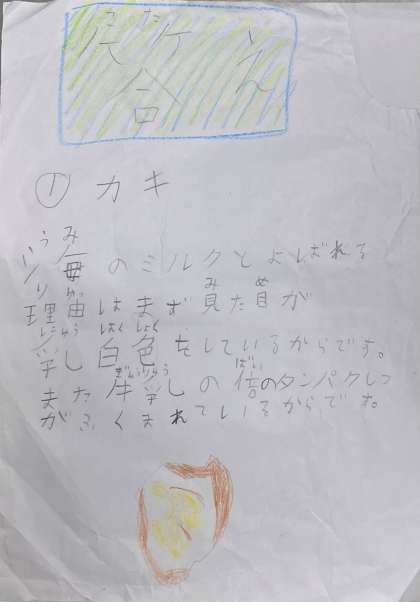 答え
① カキ
うみ
海のミルクとよばれる
りゆう み め
理由はまず見た目が
にゅう はくしょく
乳白色をしているからです。
ぎゅうにゅう ばい
また牛乳の倍のタンパクしつ
がふくまれているからです。